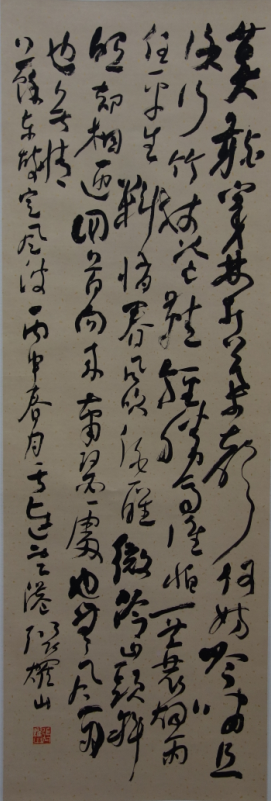 莫聽穿林打葉聲何妨吟嘯且
徐行竹杖芒鞋輕勝馬誰怕一蓑烟雨
任平生料峭春風吹酒醒微冷山頭斜
照却相迎回首向來蕭瑟處也無風雨
也無晴
錄東坡定風波丙申春月于連雲港張耀山